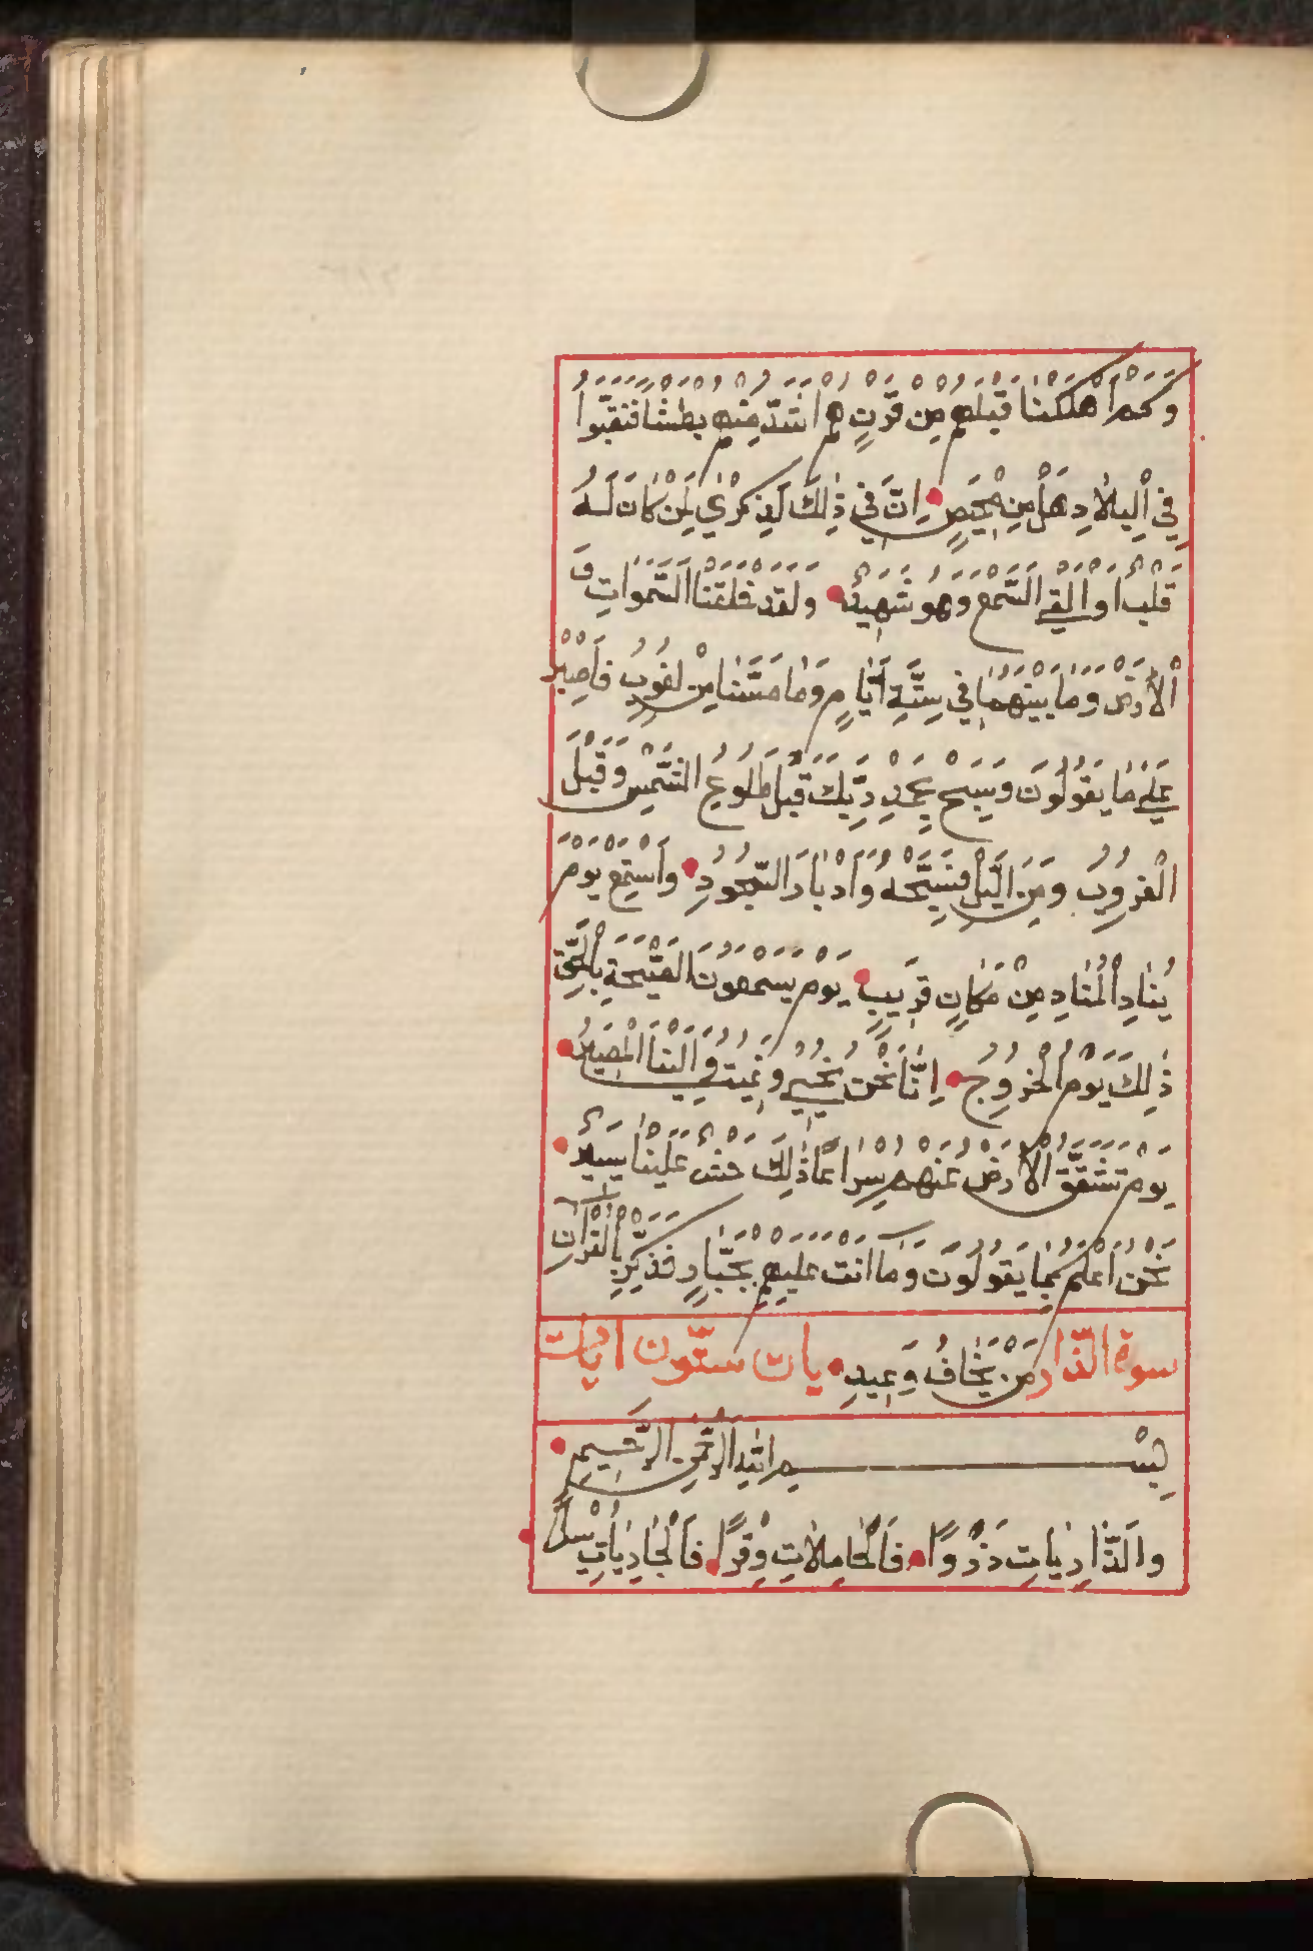 وَكَمْ أَهْلَكْنَا قَبْلَهُمْ مِنْ قَرْنٍ هُمْ أَشَدُّ مِنْهُمْ بَطْشًا فَنَقَّبُوا
فِي الْبِلَادِ هَلْ مِنْ مَحِيصٍ إِنَّ فِي ذَٰلِكَ لَذِكْرَىٰ لِمَنْ كَانَ لَهُ
قَلْبٌ أَوْ أَلْقَى السَّمْعَ وَهُوَ شَهِيدٌ وَلَقَدْ خَلَقْنَا السَّمٰوَاتِ وَ
الْأَرْضَ وَمَا بَيْنَهُمَا فِي سِتَّةِ أَيَّامٍ وَمَا مَسَّنَا مِنْ لُغُوبٍ فَاصْبِرْ
عَلَىٰ مَا يَقُولُونَ وَسَبِّحْ بِحَمْدِ رَبِّكَ قَبْلَ طُلُوعِ الشَّمْسِ وَقَبْلَ
الْغُرُوبِ وَمِنَ الَّيْلِ فَسَبِّحْهُ وَأَدْبَارَ السُّجُودِ وَاسْتَمِعْ يَوْمَ
يُنَادِ الْمُنَادِ مِنْ مَكَانٍ قَرِيبٍ يَوْمَ يَسْمَعُونَ الصَّيْحَةَ بِالْحَقِّ
ذَٰلِكَ يَوْمُ الْخُرُوجِ إِنَّا نَحْنُ نُحْيِي وَنُمِيتُ وَإِلَيْنَا الْمَصِيرُ
يَوْمَ تَشَقَّقُ الْأَرْضُ عَنْهُمْ سِرَاعًا ذَٰلِكَ حَشْرٌ عَلَيْنَا يَسِيرٌ
نَحْنُ أَعْلَمُ بِمَا يَقُولُونَ وَمَا أَنْتَ عَلَيْهِمْ بِجَبَّارٍ فَذَكِّرْ بِالْقُرْآنِ
سورة الذّار مَنْ يَخَافُ وَعِيدِ يات ستّون ايات
بِسْمِ اللهِ الرَّحْمٰنِ الرَّحِيمِ
وَالذَّارِيَاتِ ذَرْوًا فَالْحَامِلَاتِ وِقْرًا فَالْجَارِيَاتِ يُسْرًا